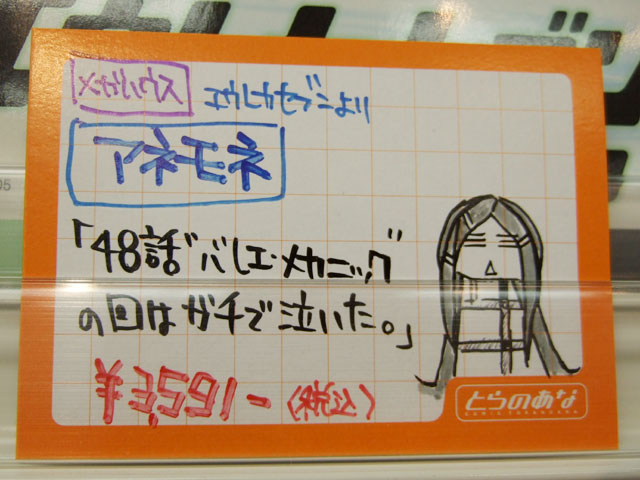 メガハウス
エウレカセブンより
アネモネ
「48話"バレエ・メカニック"
の回はガチで泣いた。」
¥3,591-〈税込〉
とらのあな
COMIC TORANOANA
05